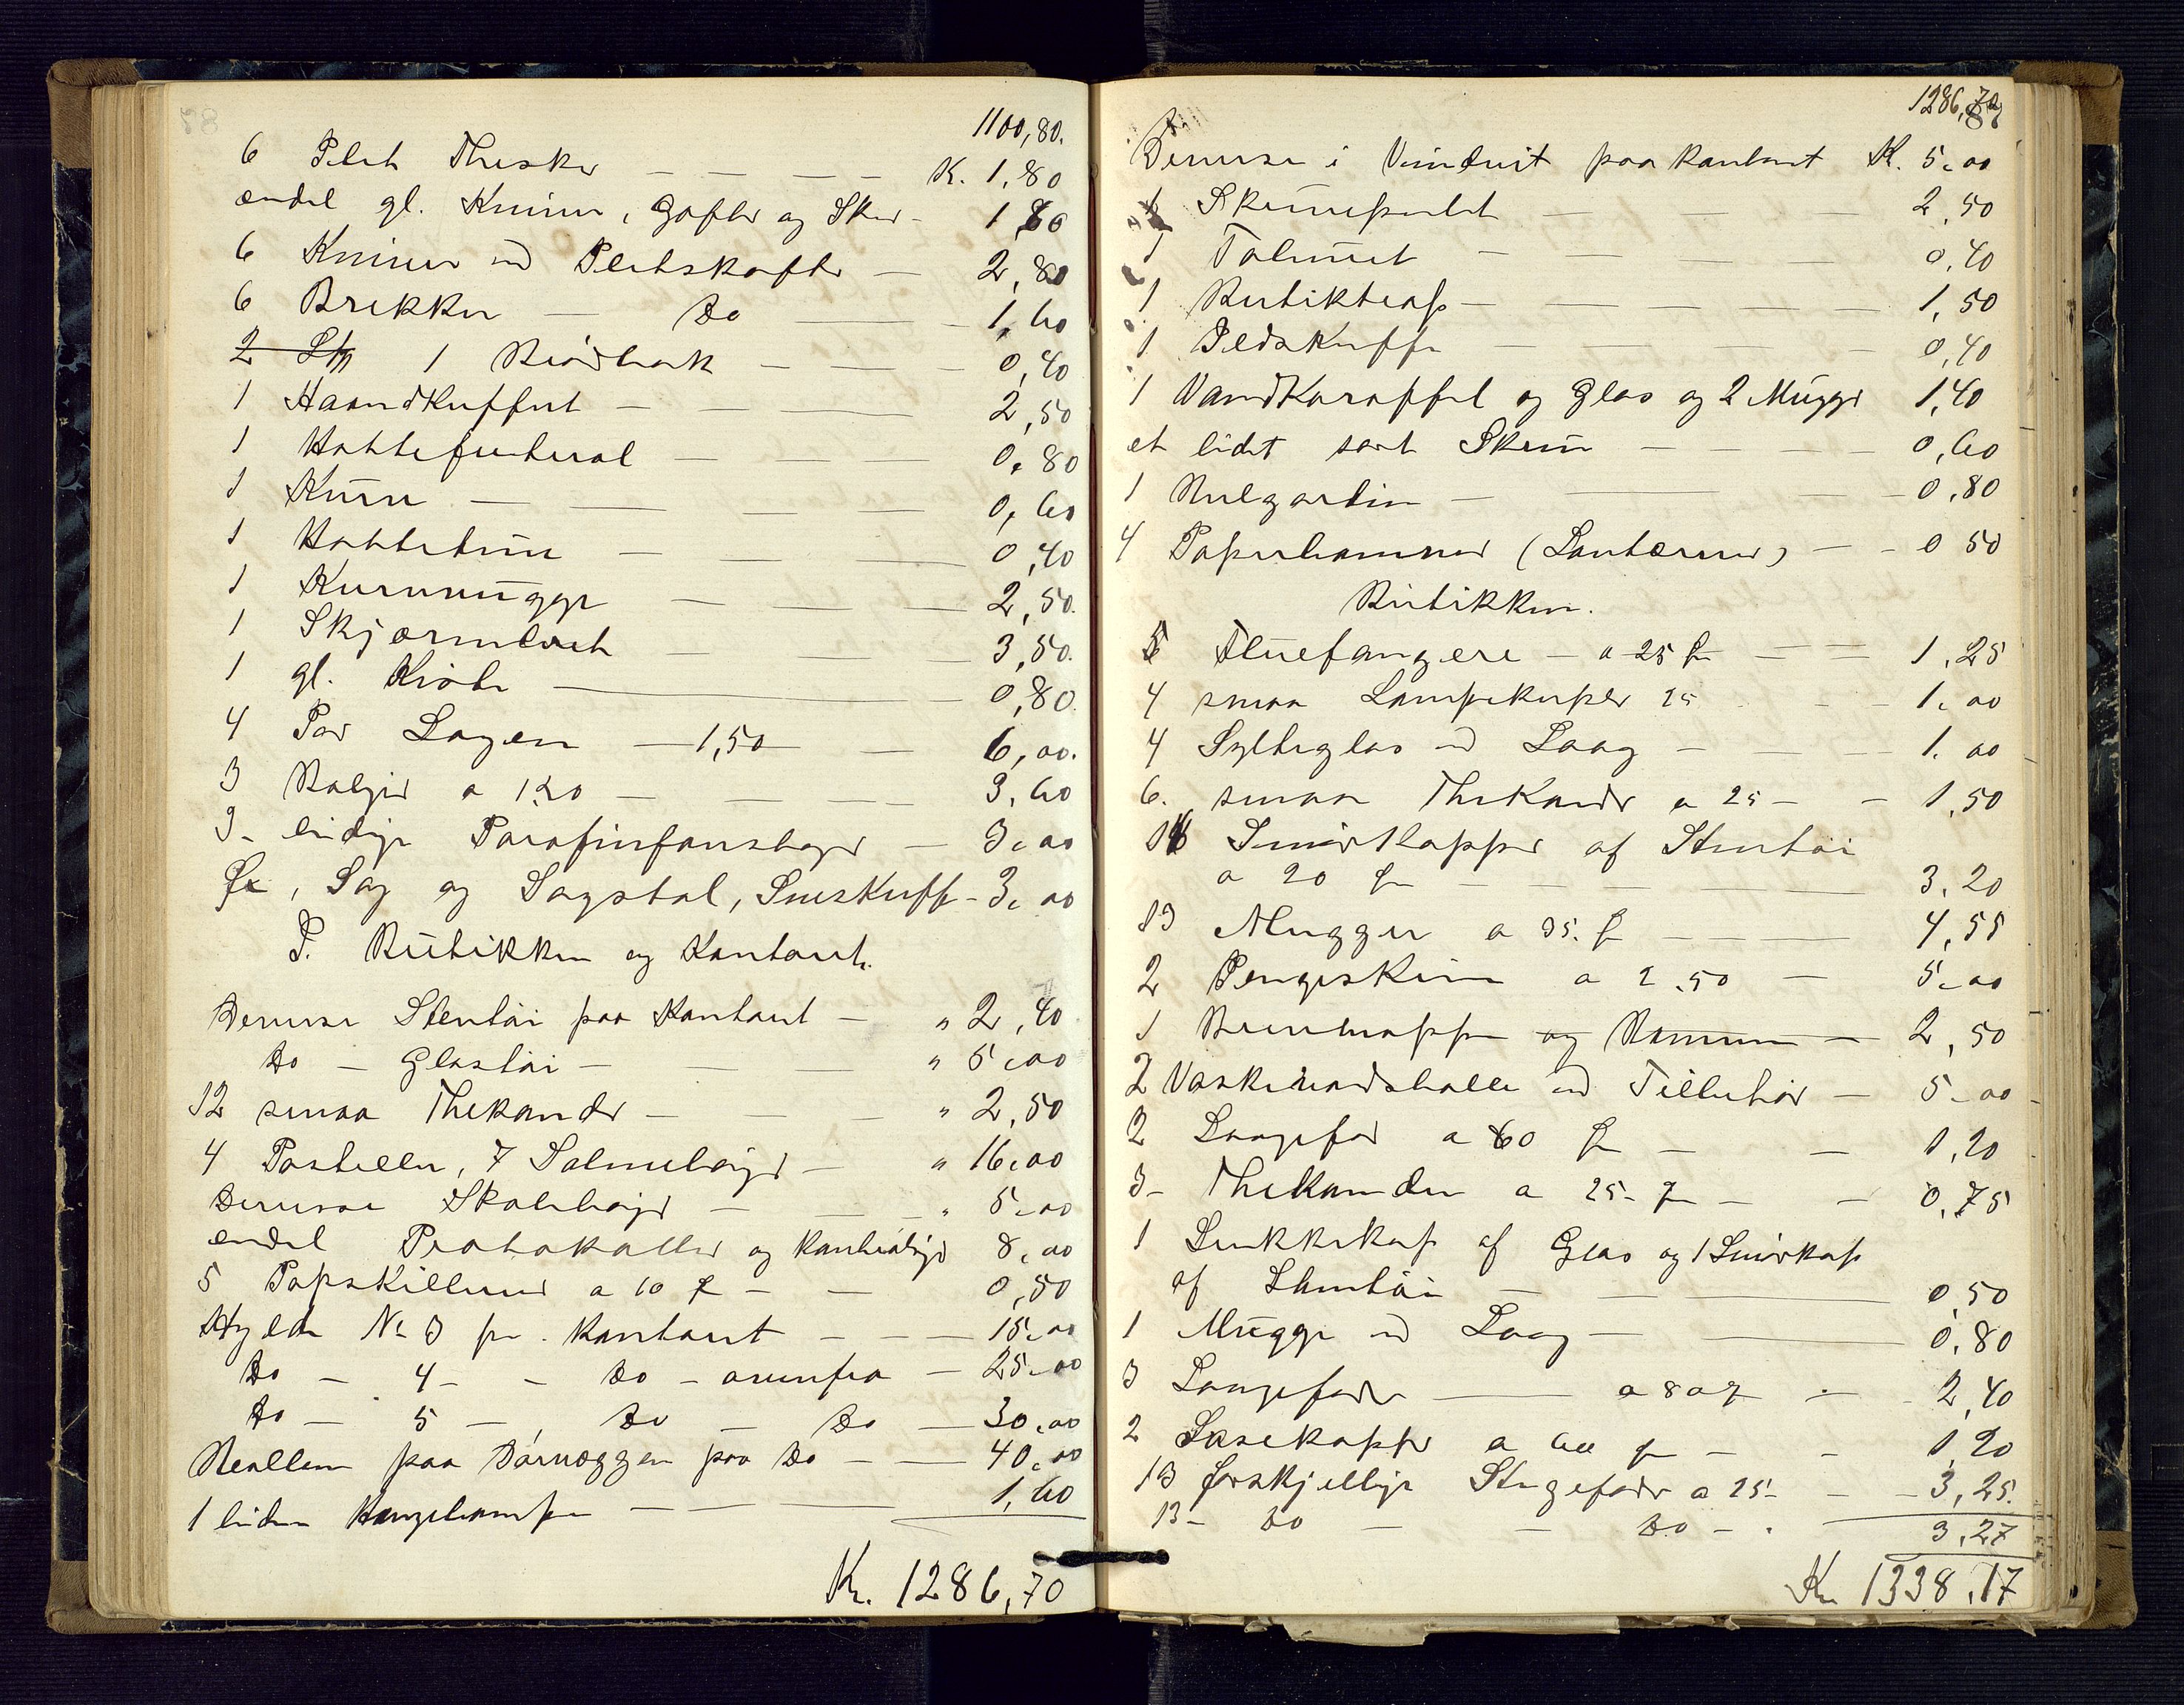 1100,80.
6 Plet Theskr — — — — K. 1,80
endel gl. Kniver, Gafler og Skr - 1,60
6 Kniver md Pletskafter — 2,80
6 Brikker — Do — 1,60
2 Stk 1 Brødbrak — — — 0,40
1 Haandkuffert — — — 2,50
1 Hattefuteral — — — 0,80
1 Kurv — — — 0,60
1 Hattetine — — — 0,40
1 Kurvvugge — — — 2,50.
1 Skjærmbret — — 3,50.
1 gl. — 0,80.
4 Par Lagen — 1,50 — 6,00.
3 Baljer a 1.20 — — — 3,60
3 - ledige Parafinfanstager — 3,00
Øx, Sag og Sagstol, Sneskuffe - 3,00
P. Butikken og Kantoret.
Diverse Stentøi paa Kontoret — " 2,40
Do — Glastøi — — " 5,00
12 smaa Thekander — — " 2,50
4 Postiller, 7 Salmebøger — " 16,00
Diverse Skolebøger — — " 5,00
endel Protokoller og Kontrabøger 8,00
5 Papskillerier a 10 ø — — 0,50
Hylde No 3 fr. Kontoret — — — 15,00
Do — 4 — — Do — ovenfra — 25,00
Do — 5 — Do — Do — 30,00
Reollen paa Dørvæggen paa Do — — 40,00
1 liden Hængelampe — — 1,60
Kr. 1286,70
1286,70
Diverse i Vinduet paa Kontoret K. 5,00
1 Skrivepult — — — 2,50
1 — — — — 0,40
1 Butiktrap — — — — 1,50
1 Ildskuffe — — — — 0,40
1 Vandkaraffel og Glas og 2 Mugger 1,40
et lidet sort Skrin — — — — 0,60
1 Rulgardin — — — 0,80
4 Papirlamper (Lanterner) — - 0 50
Butikken.
5 Fluefangere — a 25 ø — — 1,25
4 smaa Lampekupler 25 — — 1,00
4 Sylteglas md Laag — — — 1.00
6. smaa Thekander a 25 — — 1,50
16 Smørkopper af Stentøi
a 20 ø — — — — 3,20
13 Mugger a 35. ø — — — 4,55
2 Pengeskrin a 2.50 — 5,00
1 og — 2,50
2 Vaskevandsbolle md Tilbehør — 5,00 -
2 Laagefad a 60 ø — — 1,20
3 - Thekander a 25 - ø — — 0,75
1 Sukkekop af Glas og 1 Smørkop
af Stentøi — — 0,50
1 Mugge md Laag — — 0,80
3 Laagefade — a 80 ø — - 2,40
2 Sasekopper a 60 ø — — 1,20
13 forskjellige Stegefade a 25 - — - 3,25.
13 - Do — — Do - . — 3,27
Kr 1338,17